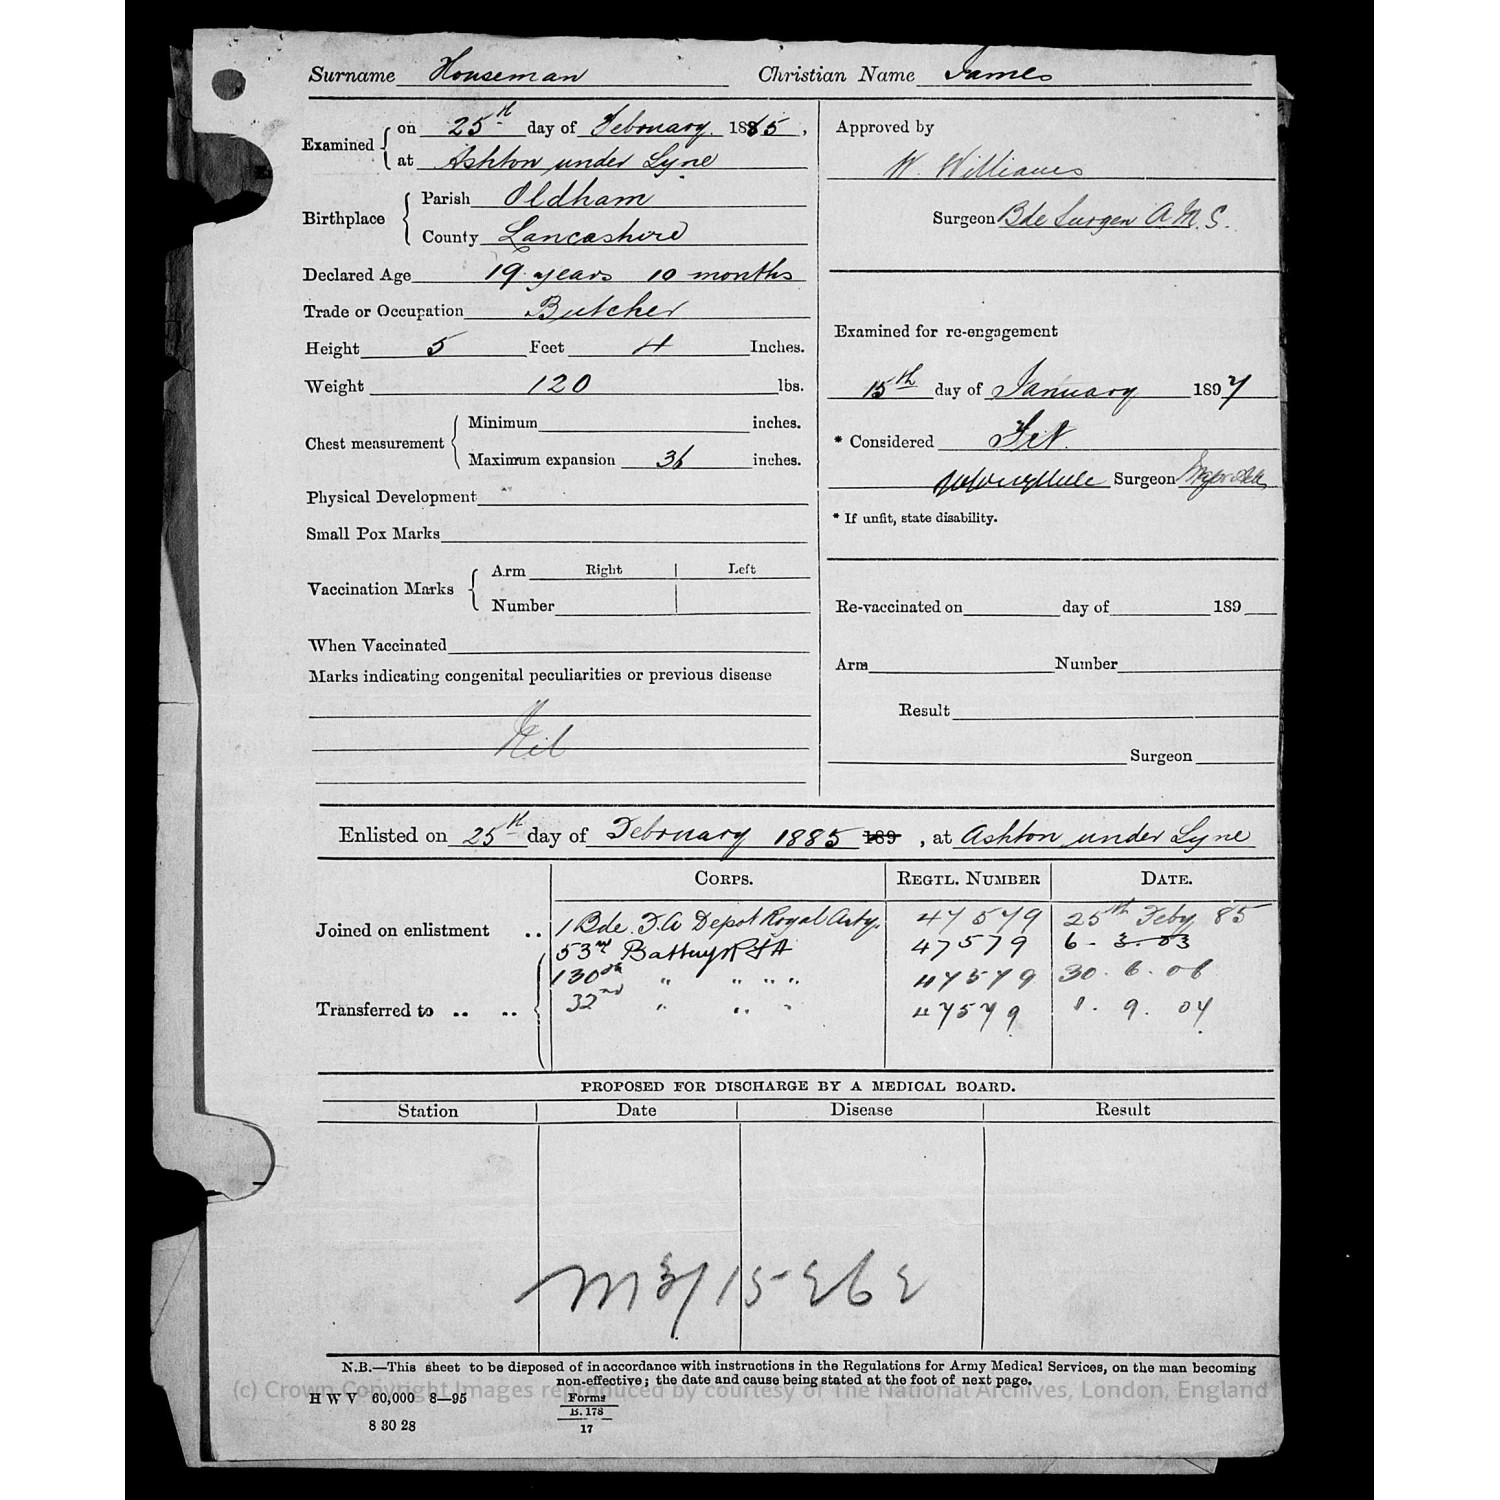 Surname Houseman Christian Name James
Examined on 25th day of February 1885,
at Ashton under Lyne
Birthplace Parish Oldham
County Lancashire
Declared Age 19 years 10 months
Trade or Occupation Butcher
Height 5 Feet 4 Inches.
Weight 120 lbs.
Chest measurement Minimum inches.
Maximum expansion 36 inches.
Physical Development
Small Pox Marks
Vaccination Marks Arm Right Left
Number
When Vaccinated
Marks indicating congenital peculiarities or previous disease
Nil
Approved by
W. Williams
Surgeon Bde Surgen A.M.S.
Examined for re-engagement
15th day of January 1897
* Considered Fit
Surgeon
* If unfit, state disability.
Re-vaccinated on day of 189
Arm Number
Result
Surgeon
Enlisted on 25th day of February 1885 189, at Ashton under Lyne
CORPS. REGTL. NUMBER DATE.
Joined on enlistment .. 1 Bde. F.A Depot Royal Arty. 47579 25th Feby 85
53rd Battery RFA 47579 6-3-03
130th " " " " 47579 30.6.06
Transferred to .. .. 32nd " " " 47579 1.9.07
PROPOSED FOR DISCHARGE BY A MEDICAL BOARD.
Station Date Disease Result
M3/15262
N.B.—This sheet to be disposed of in accordance with instructions in the Regulations for Army Medical Services, on the man becoming
non-effective; the date and cause being stated at the foot of next page.
(c) Crown Copyright Images reproduced by courtesy of The National Archives, London, England
H W V 60,000 8—95
8 30 28
Forms
B. 178
17